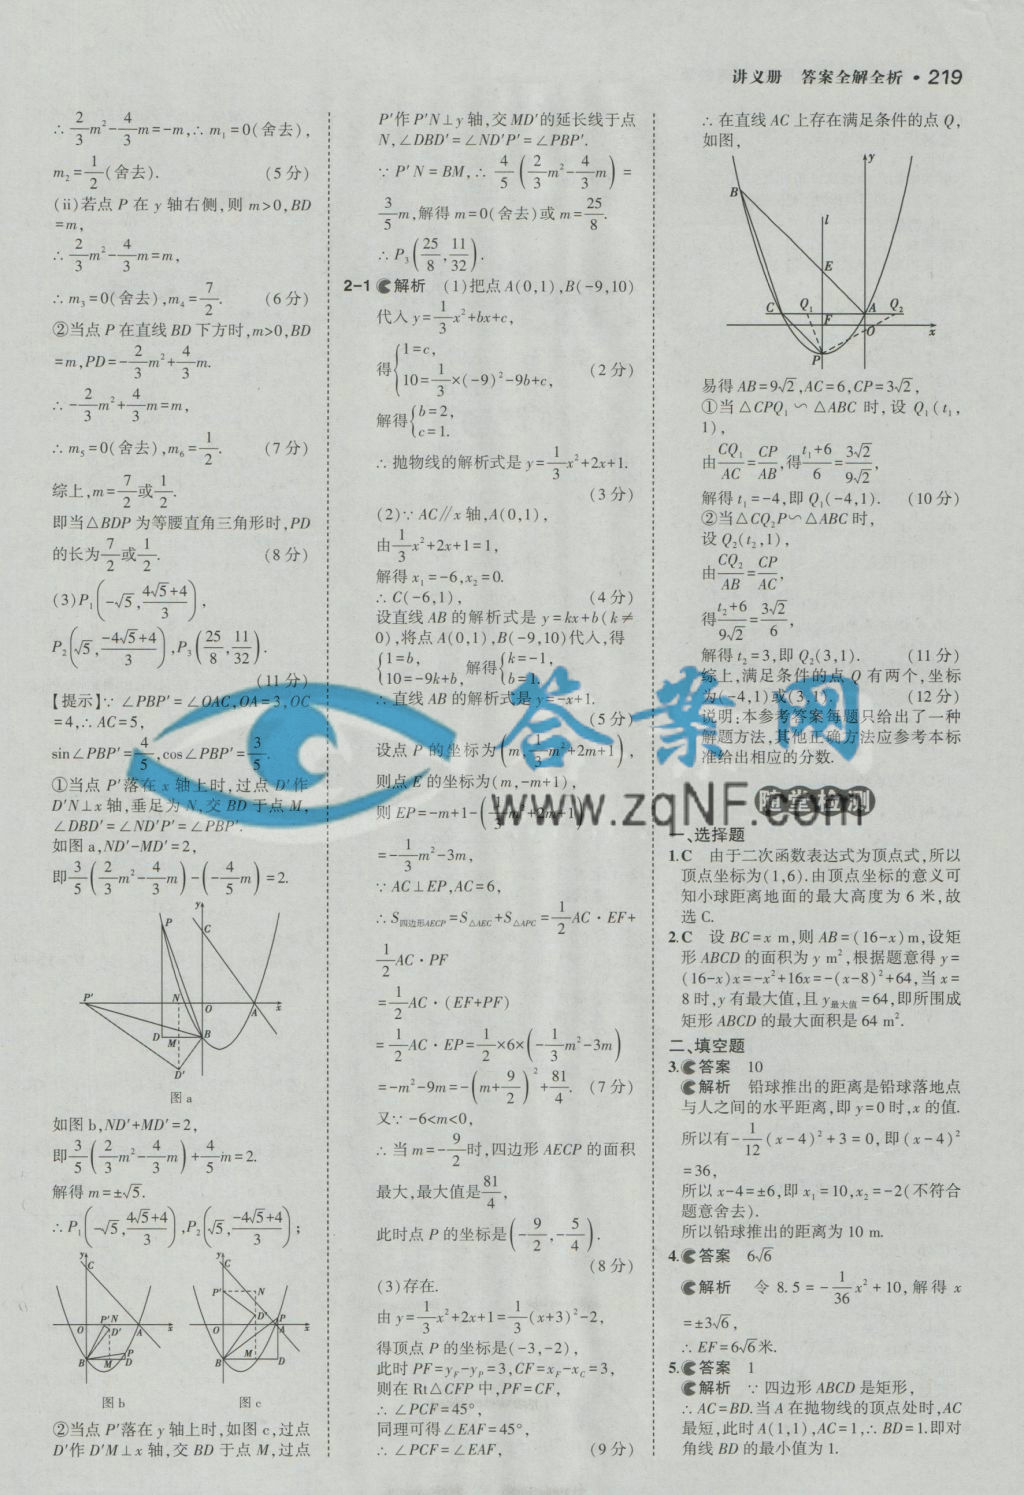 讲义册 答案全解全析·219
∴ 2/3 m²-4/3 m=-m,∴m₁=0(舍去),
m₂=1/2(舍去). (5分)
(ii)若点P在y轴右侧,则m>0,BD
=m,
∴ 2/3 m²-4/3 m=m,
∴m₃=0(舍去),m₄=7/2. (6分)
②当点P在直线BD下方时,m>0,BD
=m,PD=-2/3 m²+4/3 m.
∴ -2/3 m²+4/3 m=m,
∴m₅=0(舍去),m₆=1/2. (7分)
综上,m=7/2或1/2.
即当△BDP为等腰直角三角形时,PD
的长为7/2或1/2. (8分)
(3)P₁(-√5,(4√5+4)/3),
P₂(√5,(-4√5+4)/3),P₃(25/8,11/32).
(11分)
【提示】∵∠PBP′=∠OAC,OA=3,OC
=4,∴AC=5,
sin∠PBP′=4/5,cos∠PBP′=3/5.
①当点P′落在x轴上时,过点D′作
D′N⊥x轴,垂足为N,交BD于点M,
∠DBD′=∠ND′P′=∠PBP′.
如图a,ND′-MD′=2,
即3/5(2/3 m²-4/3 m)-(-4/5 m)=2.
y
P
C
P′
N
O
A
x
D
M
B
D′
图a
如图b,ND′+MD′=2,
即3/5(2/3 m²-4/3 m)+4/5 m=2.
解得m=±√5.
∴P₁(-√5,(4√5+4)/3),P₂(√5,(-4√5+4)/3);
y
C
P′N
O
D′
A
x
B
M
P
D
图b
y
C
P′
N
D′
P
O
A
x
B
M
D
图c
②当点P′落在y轴上时,如图c,过点
D′作D′M⊥x轴,交BD于点M,过点
P′作P′N⊥y轴,交MD′的延长线于点
N,∠DBD′=∠ND′P′=∠PBP′.
∵P′N=BM,∴4/5(2/3 m²-4/3 m)=
3/5 m,解得m=0(舍去)或m=25/8.
∴P₃(25/8,11/32).
2-1 解析 (1)把点A(0,1),B(-9,10)
代入y=1/3 x²+bx+c,
得{1=c, 10=1/3×(-9)²-9b+c, (2分)
解得{b=2, c=1.
∴抛物线的解析式是y=1/3 x²+2x+1.
(3分)
(2)∵AC∥x轴,A(0,1),
由1/3 x²+2x+1=1,
解得x₁=-6,x₂=0.
∴C(-6,1), (4分)
设直线AB的解析式是y=kx+b(k≠
0),将点A(0,1),B(-9,10)代入,得
{1=b, 10=-9k+b, 解得{k=-1, b=1.
∴直线AB的解析式是y=-x+1.
(5分)
设点P的坐标为(m,1/3 m²+2m+1),
则点E的坐标为(m,-m+1),
则EP=-m+1-(1/3 m²+2m+1)
=-1/3 m²-3m,
∵AC⊥EP,AC=6,
∴S四边形AECP=S△AEC+S△APC=1/2 AC·EF+
1/2 AC·PF
=1/2 AC·(EF+PF)
=1/2 AC·EP=1/2×6×(-1/3 m²-3m)
=-m²-9m=-(m+9/2)²+81/4. (7分)
又∵-6<m<0,
∴当m=-9/2时,四边形AECP的面积
最大,最大值是81/4,
此时点P的坐标是(-9/2,-5/4).
(8分)
(3)存在.
由y=1/3 x²+2x+1=1/3(x+3)²-2,
得顶点P的坐标是(-3,-2),
此时PF=y_F-y_P=3,CF=x_F-x_C=3,
则在Rt△CFP中,PF=CF,
∴∠PCF=45°,
同理可得∠EAF=45°,
∴∠PCF=∠EAF, (9分)
∴在直线AC上存在满足条件的点Q,
如图,
y
B
l
E
C
Q₁
F
A
Q₂
O
x
P
易得AB=9√2,AC=6,CP=3√2,
①当△CPQ₁∽△ABC时,设Q₁(t₁,
1),
由CQ₁/AC=CP/AB,得(t₁+6)/6=3√2/9√2,
解得t₁=-4,即Q₁(-4,1). (10分)
②当△CQ₂P∽△ABC时,
设Q₂(t₂,1),
由CQ₂/AB=CP/AC,
得(t₂+6)/9√2=3√2/6,
解得t₂=3,即Q₂(3,1). (11分)
综上,满足条件的点Q有两个,坐标
为(-4,1)或(3,1). (12分)
说明:本参考答案每题只给出了一种
解题方法,其他正确方法应参考本标
准给出相应的分数.
随堂检测
一、选择题
1.C 由于二次函数表达式为顶点式,所以
顶点坐标为(1,6).由顶点坐标的意义可
知小球距离地面的最大高度为6米,故
选C.
2.C 设BC=x m,则AB=(16-x)m,设矩
形ABCD的面积为y m²,根据题意得y=
(16-x)x=-x²+16x=-(x-8)²+64,当x=
8时,y有最大值,且y最大值=64,即所围成
矩形ABCD的最大面积是64 m².
二、填空题
3. 答案 10
解析 铅球推出的距离是铅球落地点
与人之间的水平距离,即y=0时,x的值.
所以有-1/12(x-4)²+3=0,即(x-4)²
=36,
所以x-4=±6,即x₁=10,x₂=-2(不符合
题意舍去).
所以铅球推出的距离为10 m.
4. 答案 6√6
解析 令8.5=-1/36 x²+10,解得x
=±3√6,
∴EF=6√6米.
5. 答案 1
解析 ∵四边形ABCD是矩形,
∴AC=BD.当A在抛物线的顶点处时,AC
最短,此时A(1,1),AC=1,∴BD=1.即对
角线BD的最小值为1.
答案网
www.zqNF.com